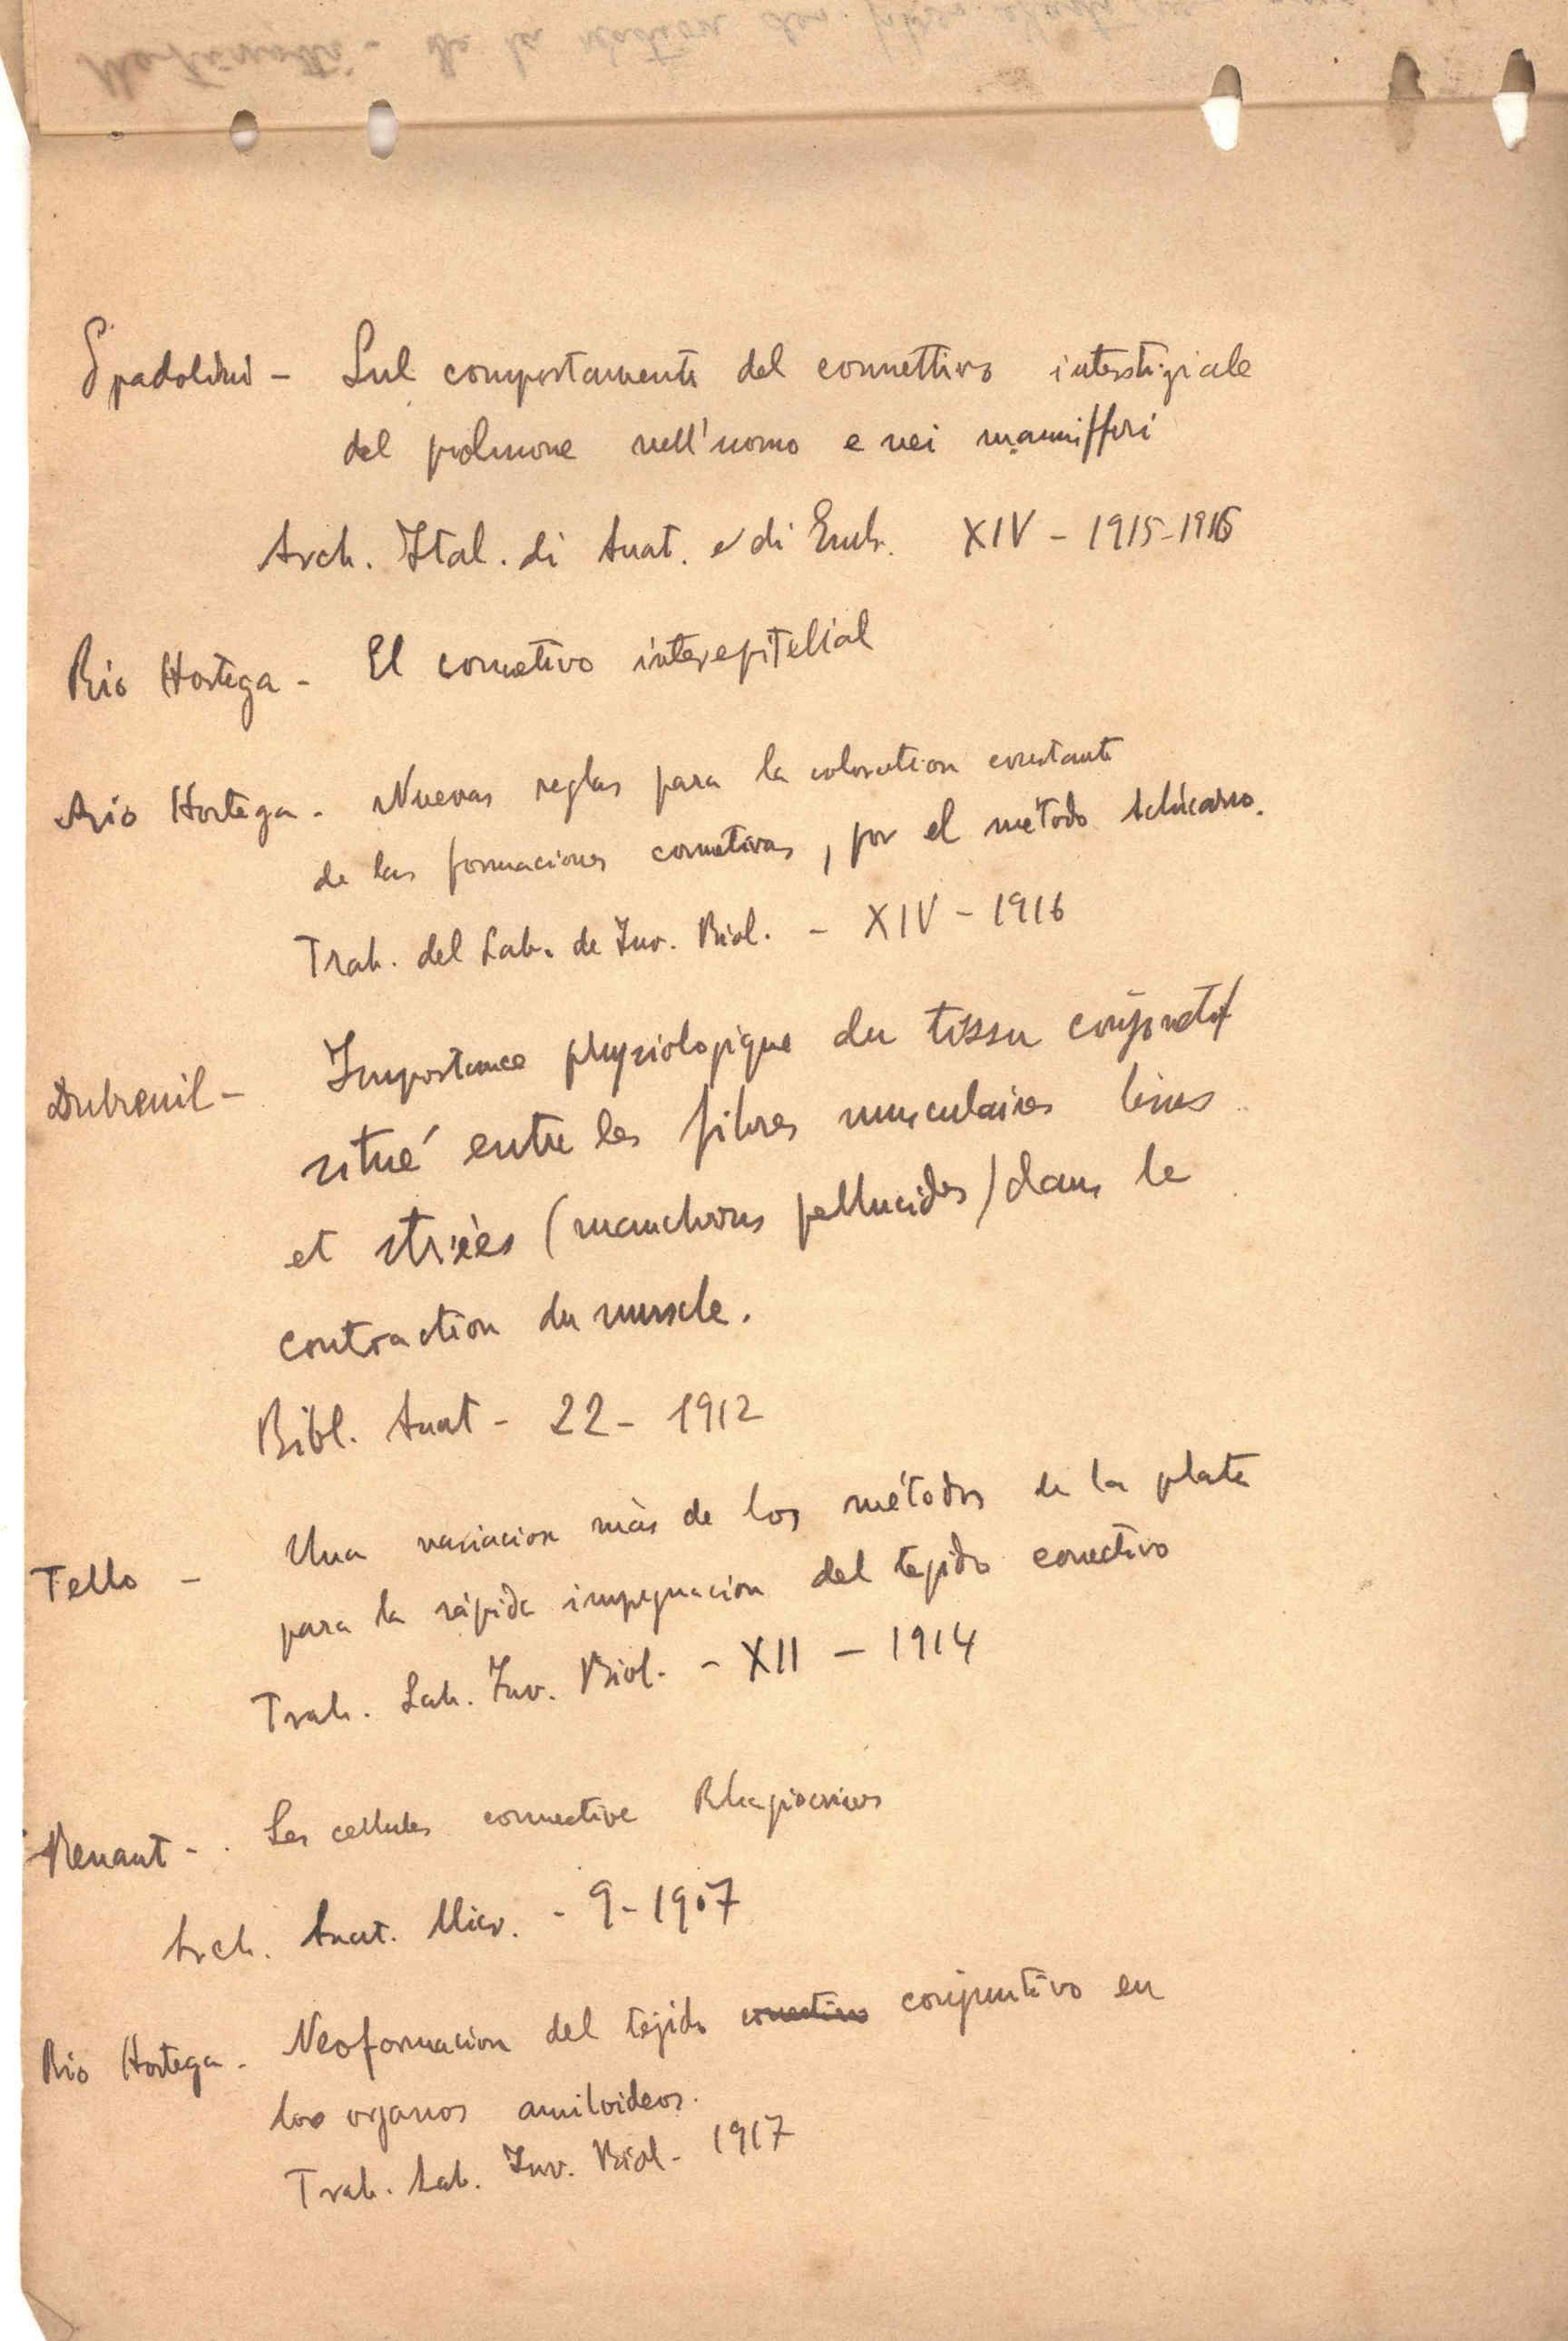 Spadolini - Sul comportamento del connettivo interstiziale
del polmone nell'uomo e nei mammifferi
Arch. Ital. di Anat. e di Emb. XIV - 1915-1916
Rio Hortega - El conectivo interepitelial
Rio Hortega - Nuevas reglas para la coloration constante
de las formaciones conectivas, por el método Achúcarro.
Trab. del Lab. de Inv. Biol. - XIV - 1916
Dubreuil - Importance physiologique du tissu conjonctif
situé entre les fibres musculaires lisses
et striées (manchons pellucides) dans le
contraction du muscle.
Bibl. Anat - 22 - 1912
Tello - Una variacion más de los métodos de la plata
para la rápida impregnacion del tejido conectivo
Trab. Lab. Inv. Biol. - XII - 1914
Renaut - Les cellules connective Rhagiocrines
Arch. Anat. Micr. - 9 - 1907
Rio Hortega - Neoformacion del tejido conectivo conjuntivo en
los organos amiloideos.
Trab. Lab. Inv. Biol - 1917